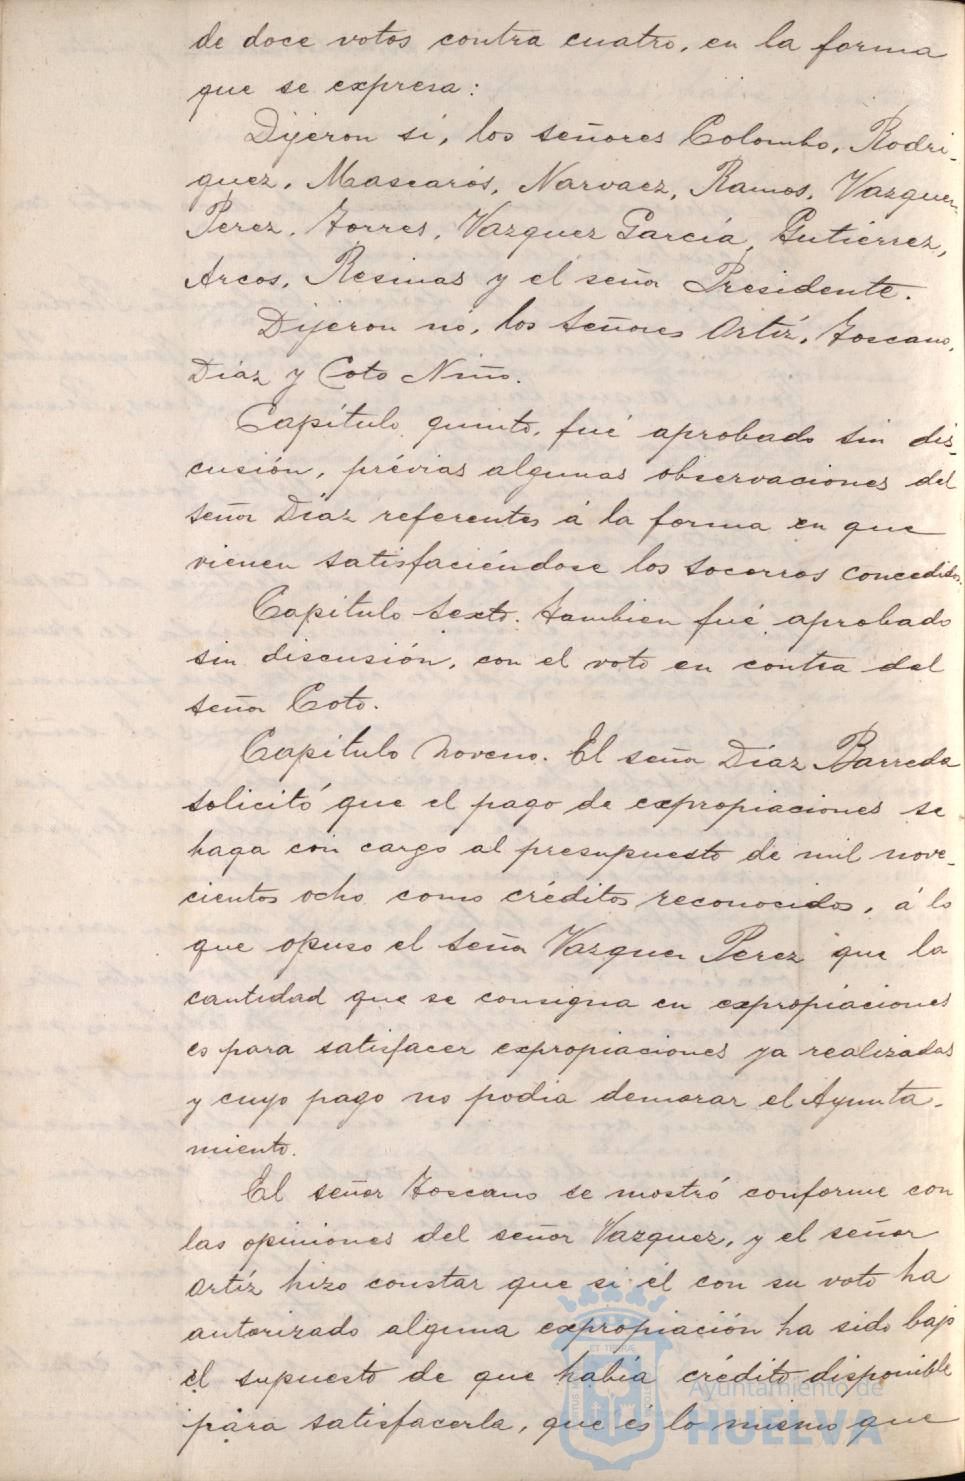 de doce votos contra cuatro, en la forma
que se expresa:
Dijeron si, los señores Colombo, Rodri-
guez, Mascarós, Narvaez, Ramos, Vazquez
Perez, Torres, Vazquez García, Gutiérrez,
Arcos, Resinas y el señor Presidente.
Dijeron no, los señores Ortíz, Toscano,
Díaz y Coto Niño.
Capítulo quinto, fué aprobado sin dis-
cusión, prévias algunas observaciones del
señor Díaz referentes á la forma en que
vienen satisfaciéndose los socorros concedidos.
Capitulo sexto. tambien fué aprobado
sin discusión, con el voto en contra del
señor Coto.
Capítulo noveno. El señor Díaz Barreda
solicitó que el pago de expropiaciones se
haga con cargo al presupuesto de mil nove-
cientos ocho como créditos reconocidos, á lo
que opuso el señor Vazquez Perez que la
cantidad que se consigna en expropiaciones
es para satisfacer expropiaciones ya realizadas
y cuyo pago no podia demorar el Ayunta-
miento.
El señor Toscano se mostró conforme con
las opiniones del señor Vazquez, y el señor
Ortíz hizo constar que si él con su voto ha
autorizado alguna expropiación ha sido bajo
el supuesto de que había crédito disponible
para satisfacerla, que és lo mismo que
Ayuntamiento de
HUELVA